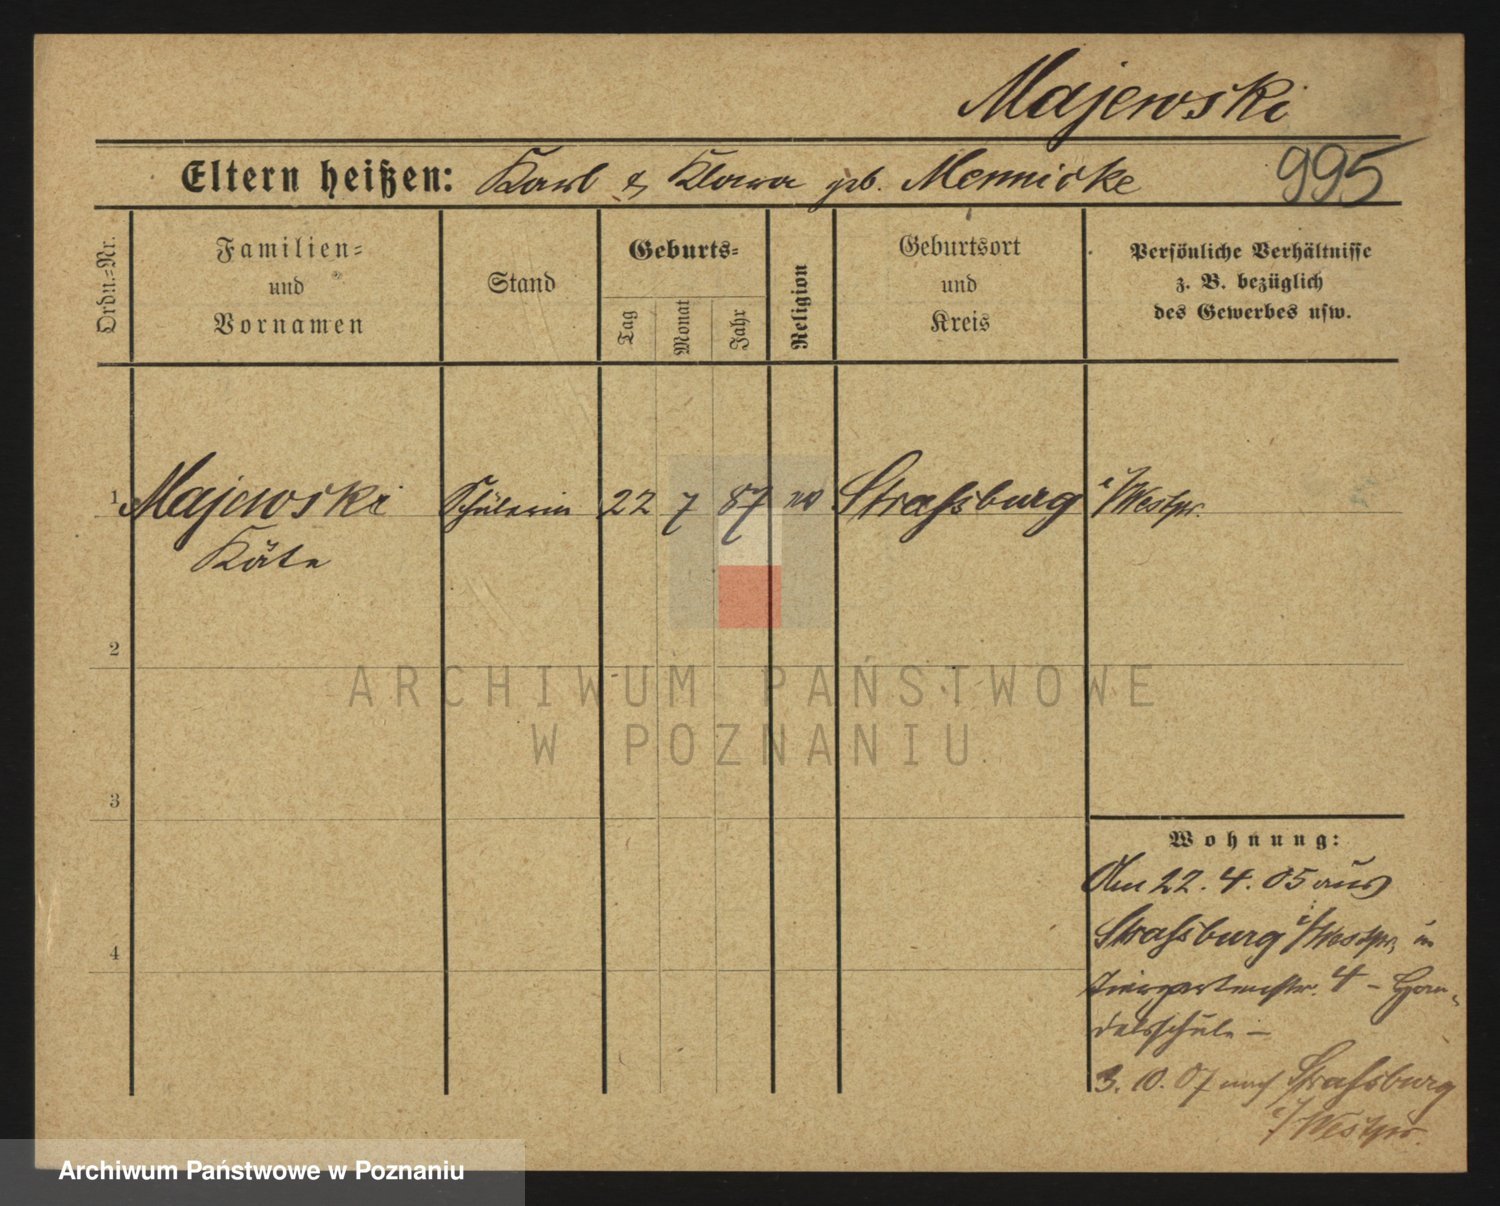 Majewski
Eltern heißen: Karl & Klara geb. Mennicke 995
Ordn.=Nr.
Familien=
und
Vornamen
Stand
Geburts=
Tag
Monat
Jahr
Religion
Geburtsort
und
Kreis
Persönliche Verhältnisse
z. B. bezüglich
des Gewerbes usw.
1 Majewski Schülerin 22 7 87 ev Straßburg i/Westpr.
Käte
2
3
4
ARCHIWUM PAŃSTWOWE
W POZNANIU
Wohnung:
Am 22. 4. 05 aus
Straßburg i/Westpr. in
Tiergartenstr. 4 - Han-
delsschule -
3. 10. 07 nach Straßburg
i/Westpr.
Archiwum Państwowe w Poznaniu